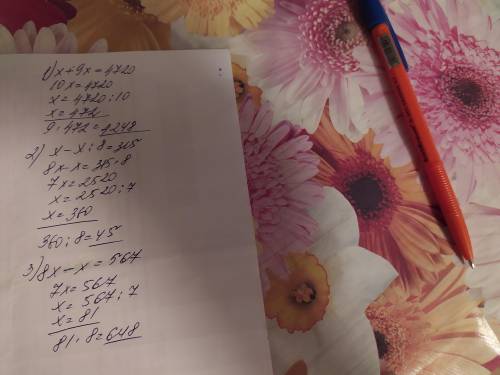 1) x + 9x = 4720
10x = 4720
x = 4720 : 10
x = 472
9 · 472 = 4248
2) x - x : 8 = 315
8x - x = 315 · 8
7x = 2520
x = 2520 : 7
x = 360
360 : 8 = 45
3) 8x - x = 567
7x = 567
x = 567 : 7
x = 81
81 · 8 = 648